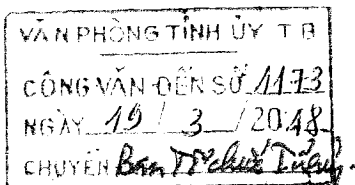 VĂN PHÒNG TỈNH ỦY T B
CÔNG VĂN ĐẾN SỐ 1173
NGÀY 19 / 3 / 2018
CHUYỂN Ban Tổ chức Tỉnh ủy.